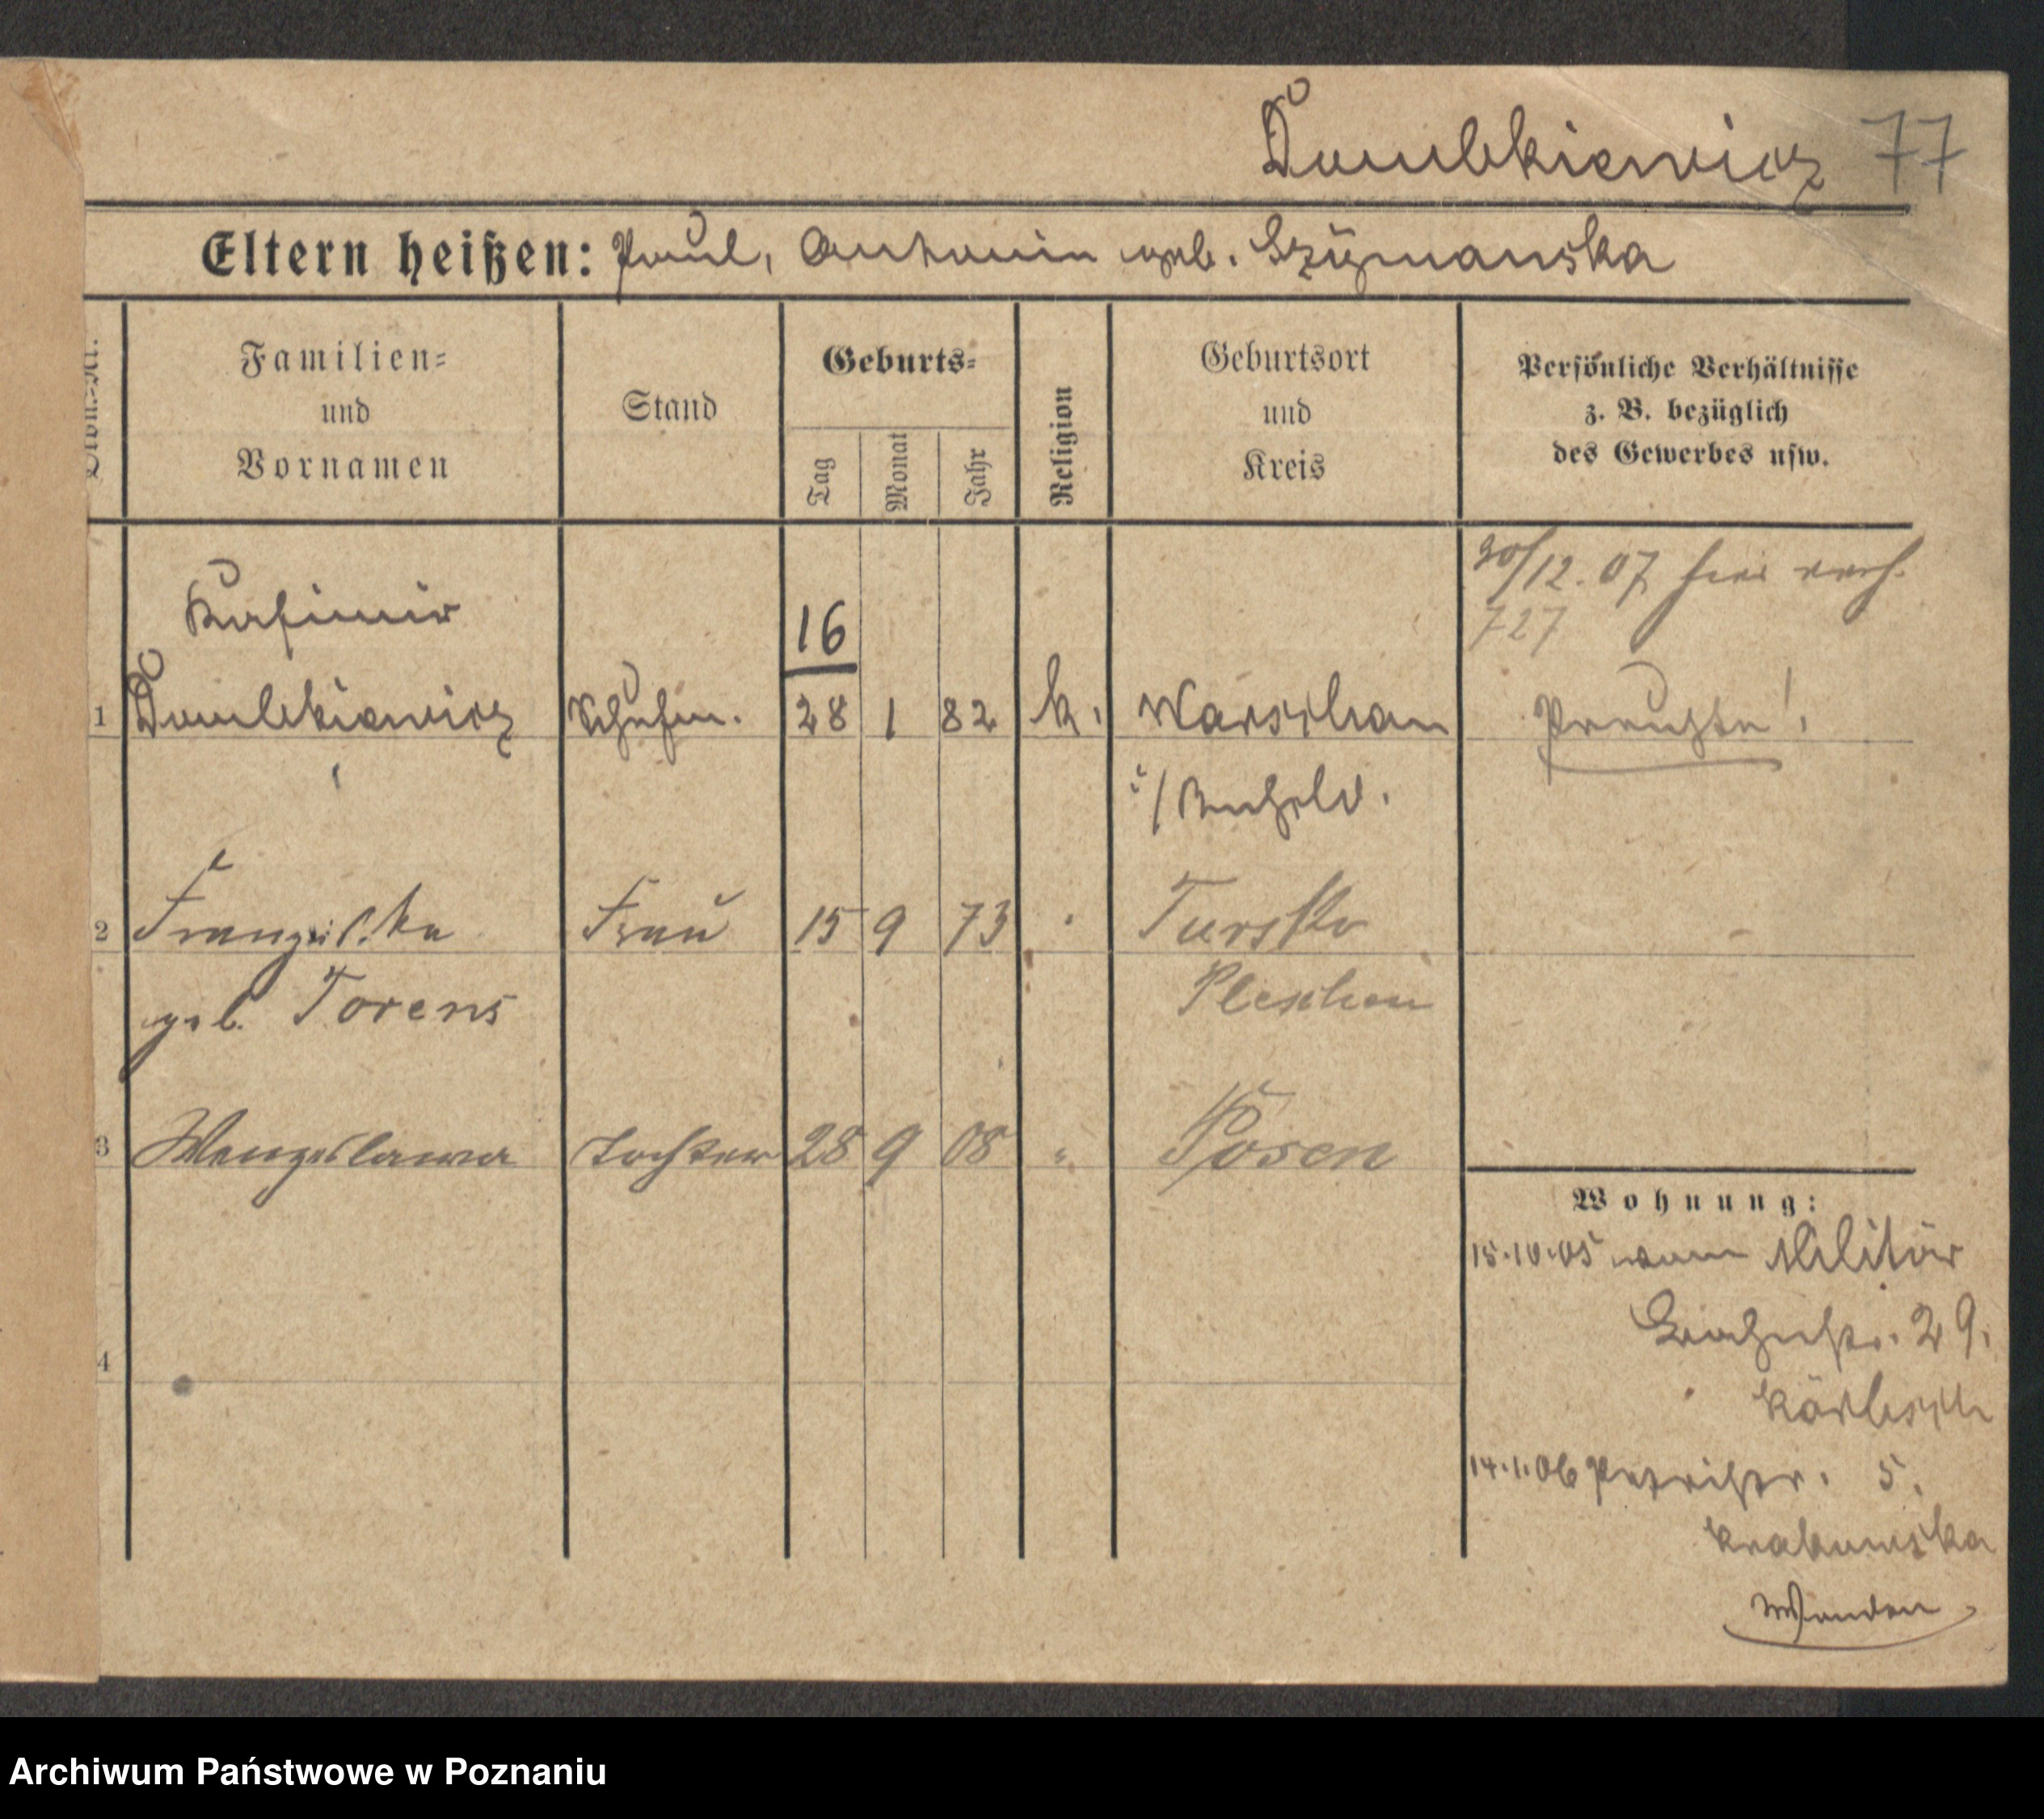 Dombkiewicz 77
Eltern heißen: Paul, Antonin geb. Szÿmanska
Familien=
und
Vornamen
Stand
Geburts=
Tag
Monat
Jahr
Religion
Geburtsort
und
Kreis
Persönliche Verhältnisse
z. B. bezüglich
des Gewerbes usw.
30/12. 07 hier verh.
727
Kasimir
16
1 Dombkiewicz Schuhm. 28 1 82 k. Warschau
i/Rußld.
Preuße!
2 Franziska Frau 15 9 73 Tursko
geb. Torens Pleschen
3 Wenzeslawa Tochter 28 9 08 " Posen
Wohnung:
15.10.05 vom Militär
29.
4
14.1.06 5.
Wenden
Archiwum Państwowe w Poznaniu